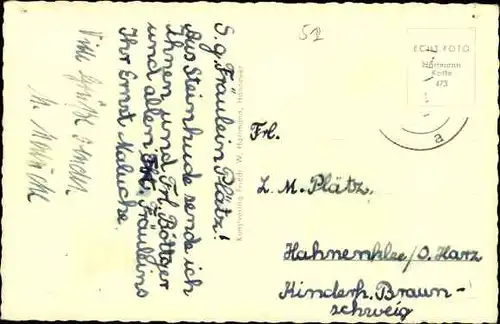 S. g. Fräulein Plätz!
Aus Steinhude sende ich
Ihnen und Frl. Böttger
und allen Fräuleins
Ihr Ernst Maluche.
Viele Grüße
51
ECHT FOTO
Hartmann
Karte
473
a
Frl.
L. M. Plätz,
Hahnenklee/O. Harz
Kinderh. Braun-
schweig